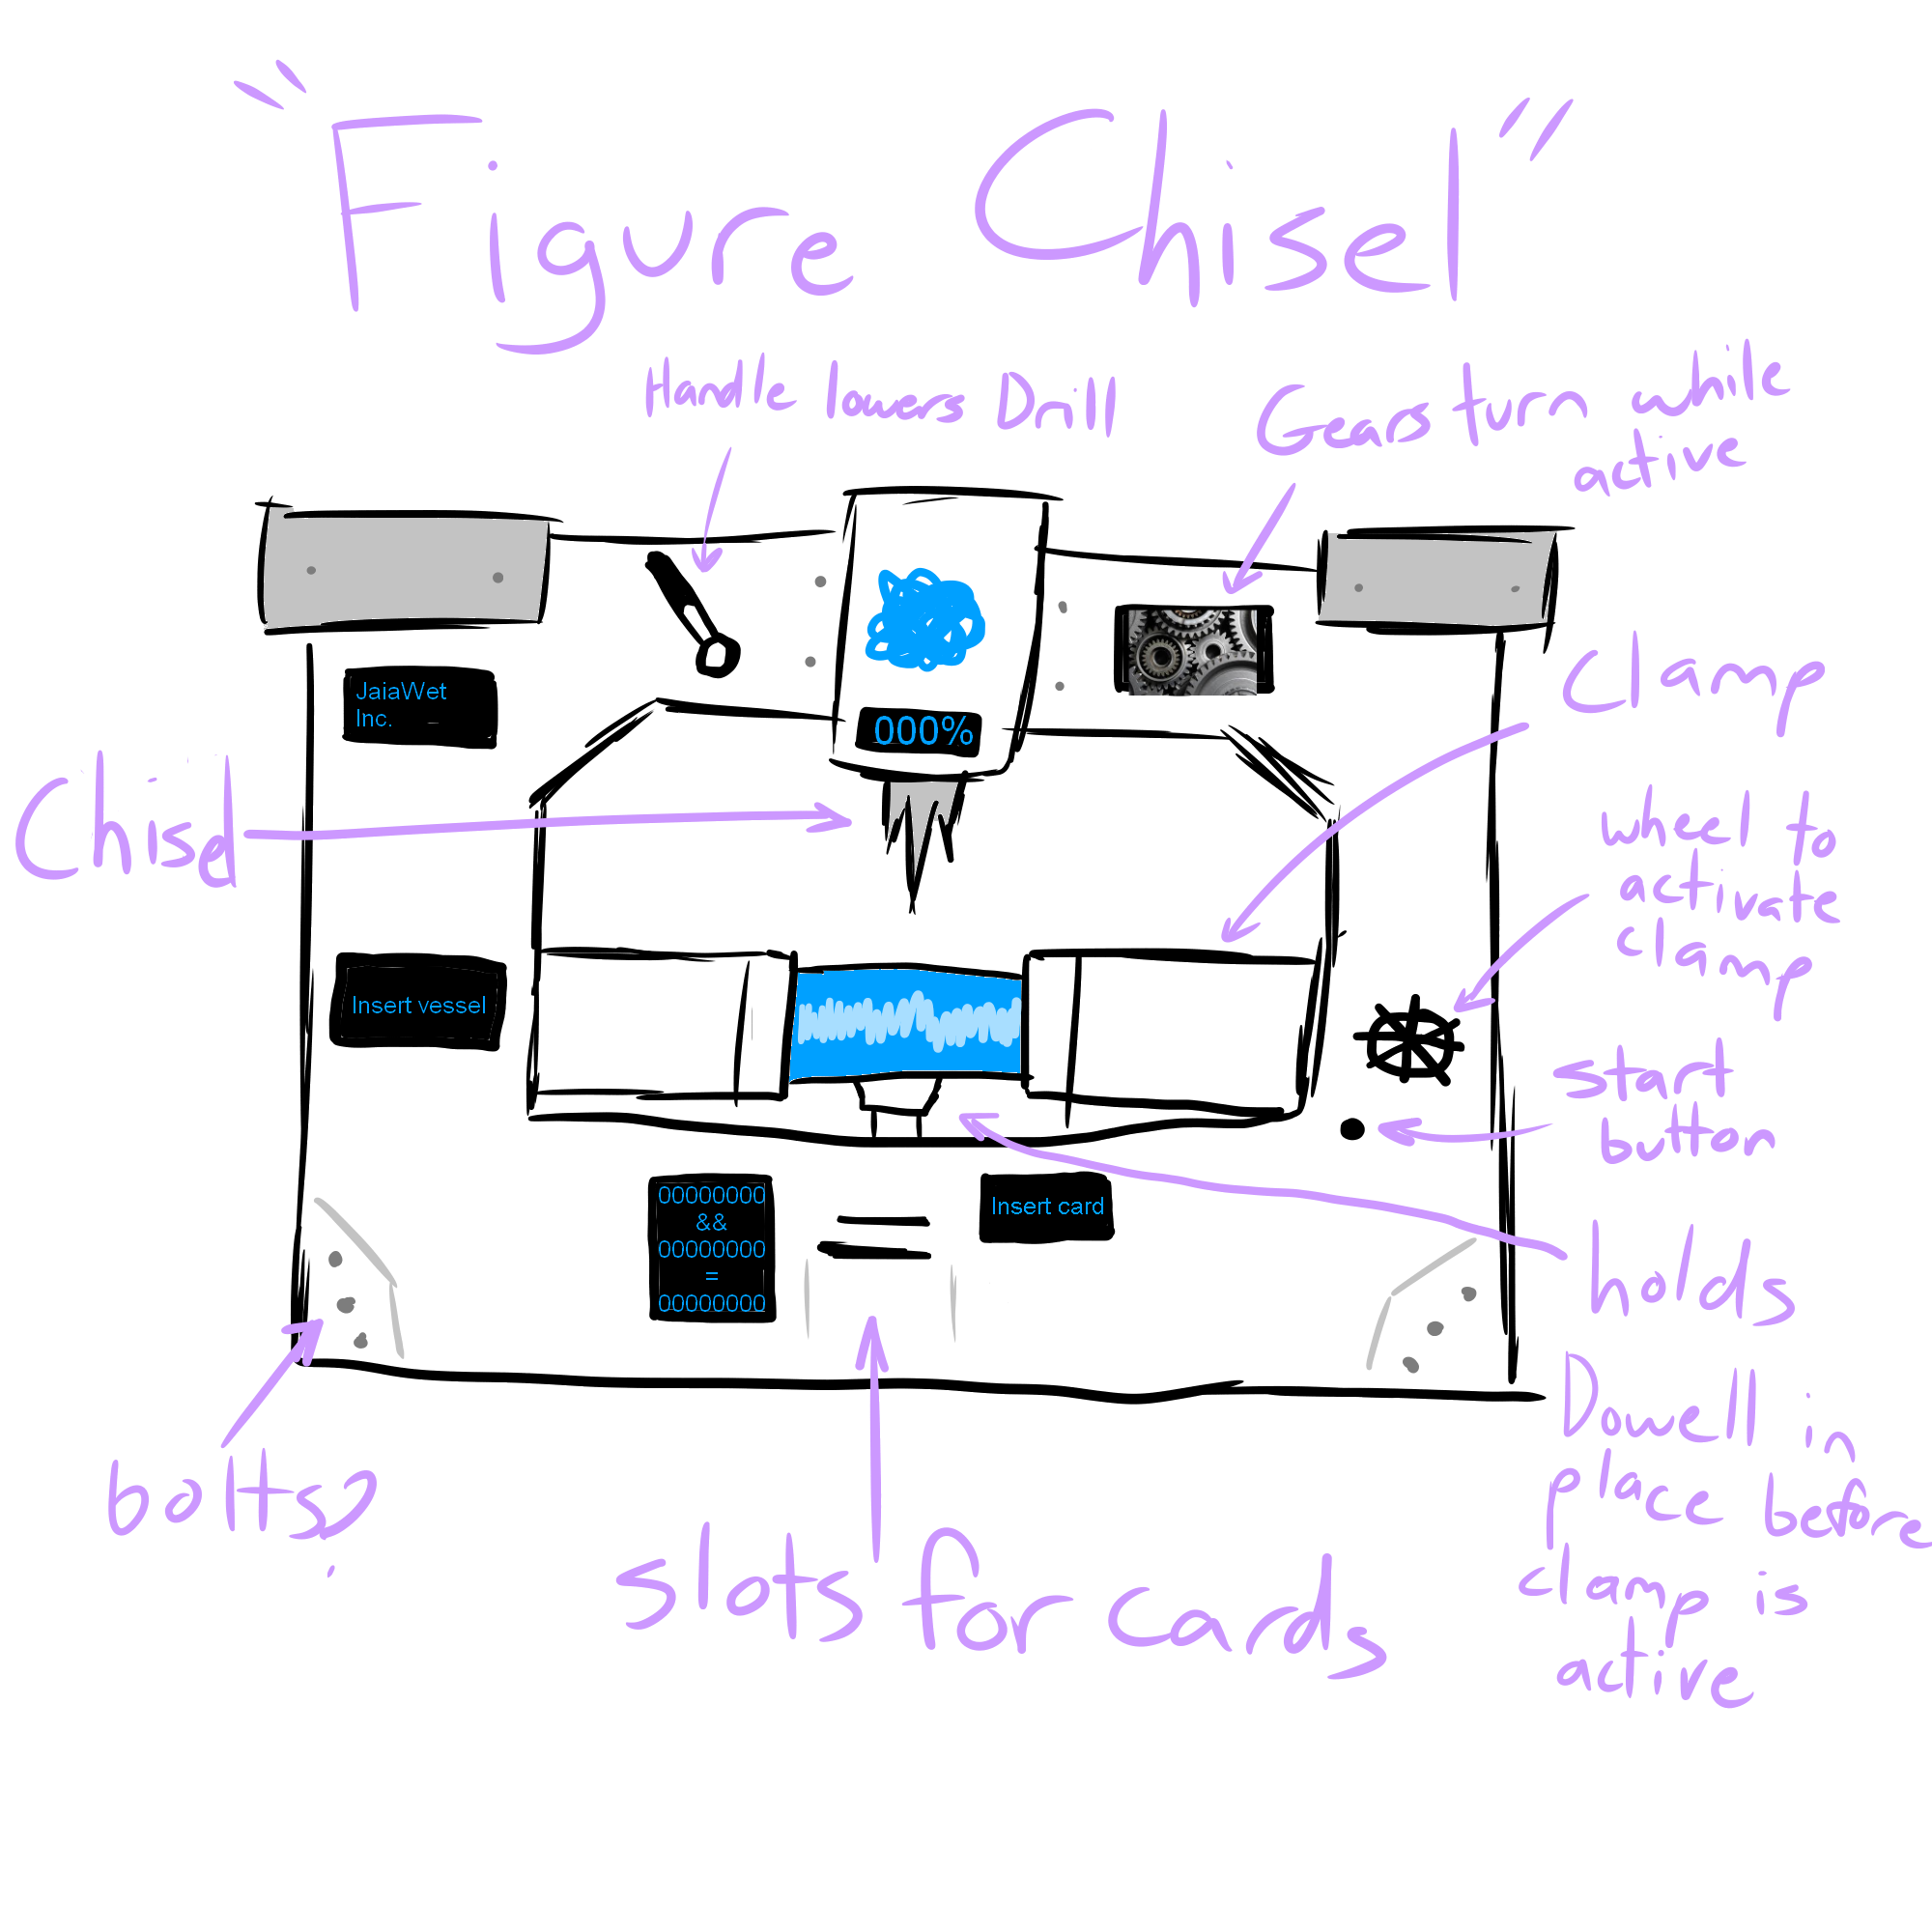 "Figure Chisel"
Handle lowers Drill
Gears turn while
active
JaiaWet
Inc.
000%
Clamp
Chisel
wheel to
activate
clamp
Insert vessel
start
button
00000000
&&
00000000
=
00000000
Insert card
holds
Dowell in
place before
clamp is
active
bolts?
slots for cards